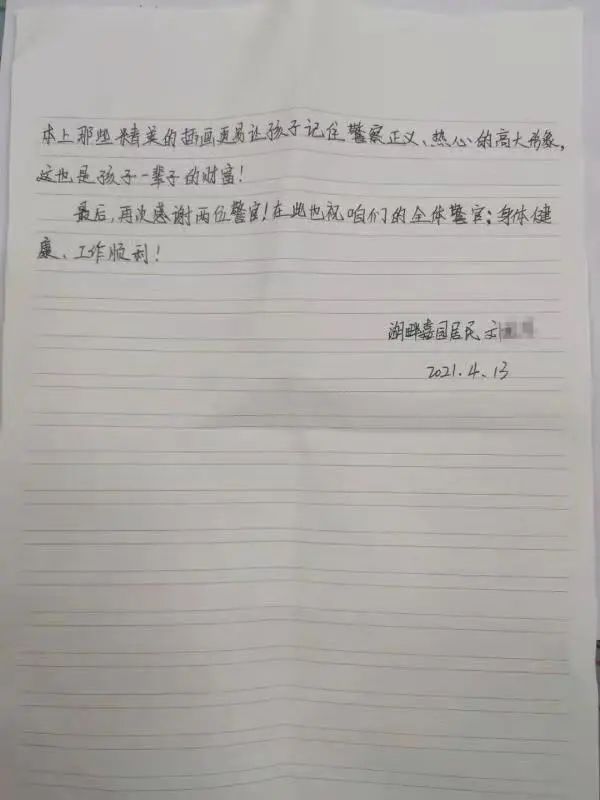 本上那些精美的插画更易让孩子记住警察正义、热心的高大形象,
这也是孩子一辈子的财富!
最后,再次感谢两位警官!在此也祝咱们的全体警官:身体健
康、工作顺利!
湖畔嘉园居民
2021.4.13